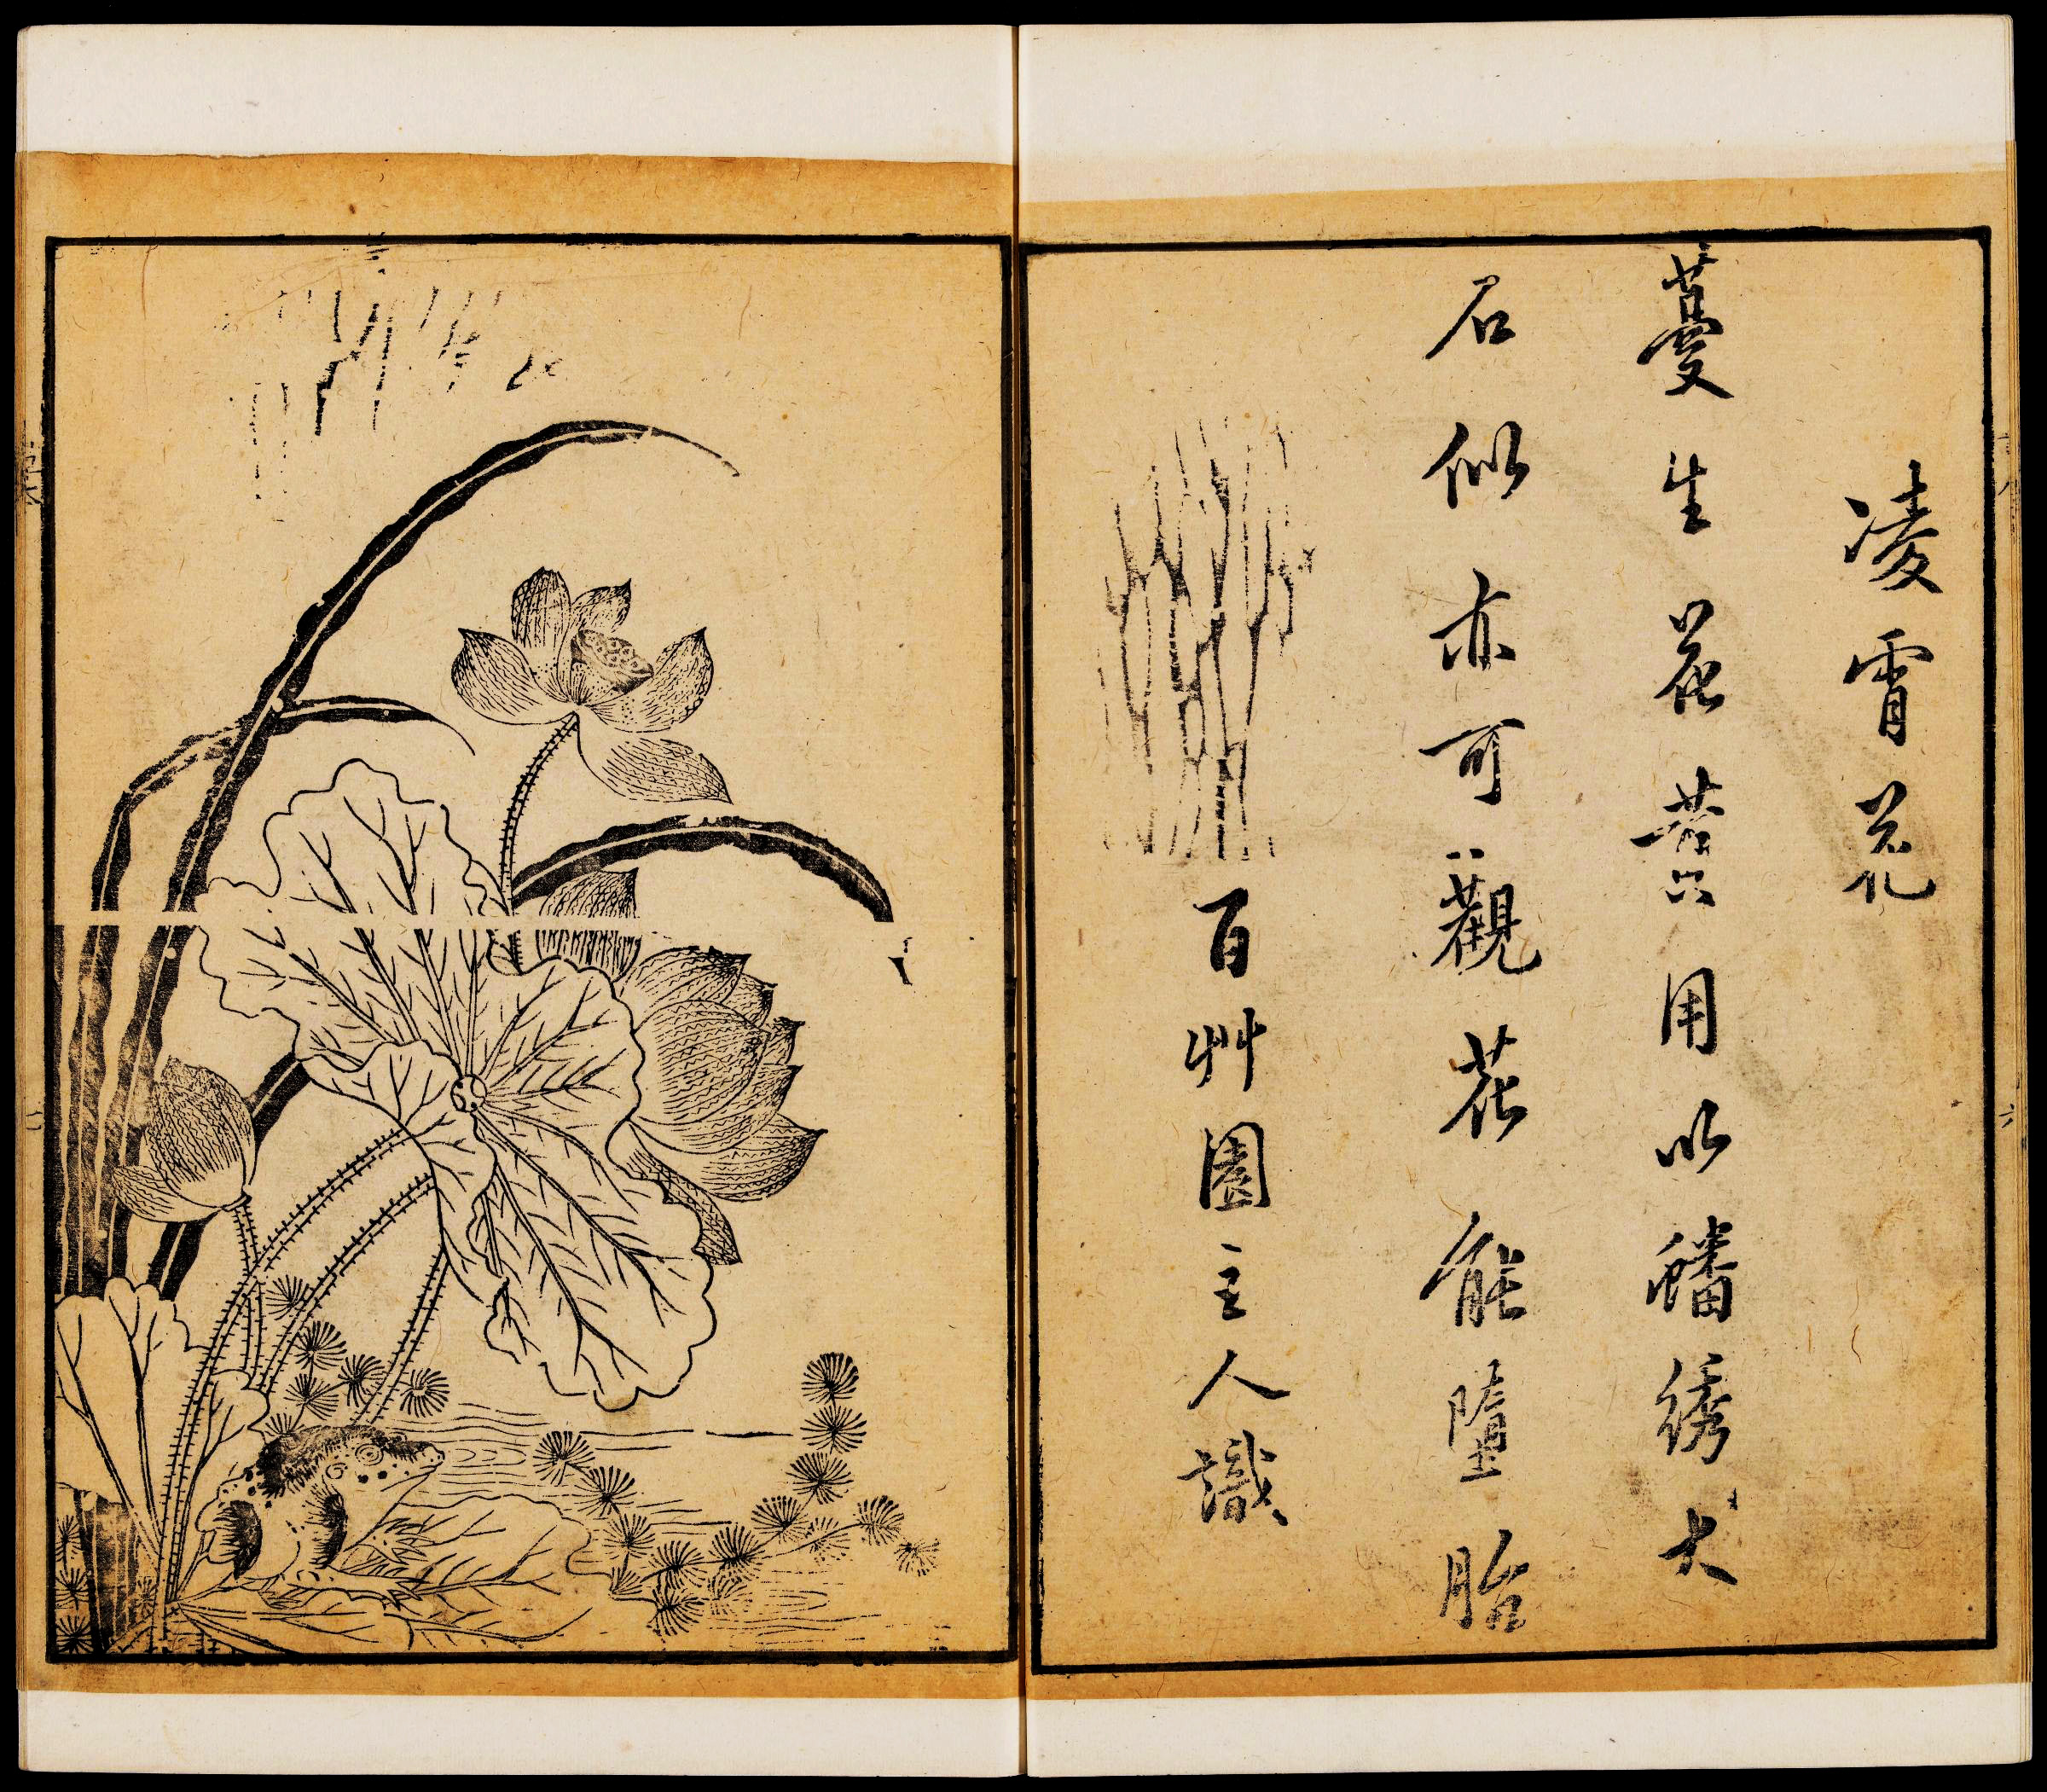 凌霄花
蔓生花黄用以蟠綉大
石似亦可觀花能墮胎
百艸園主人識